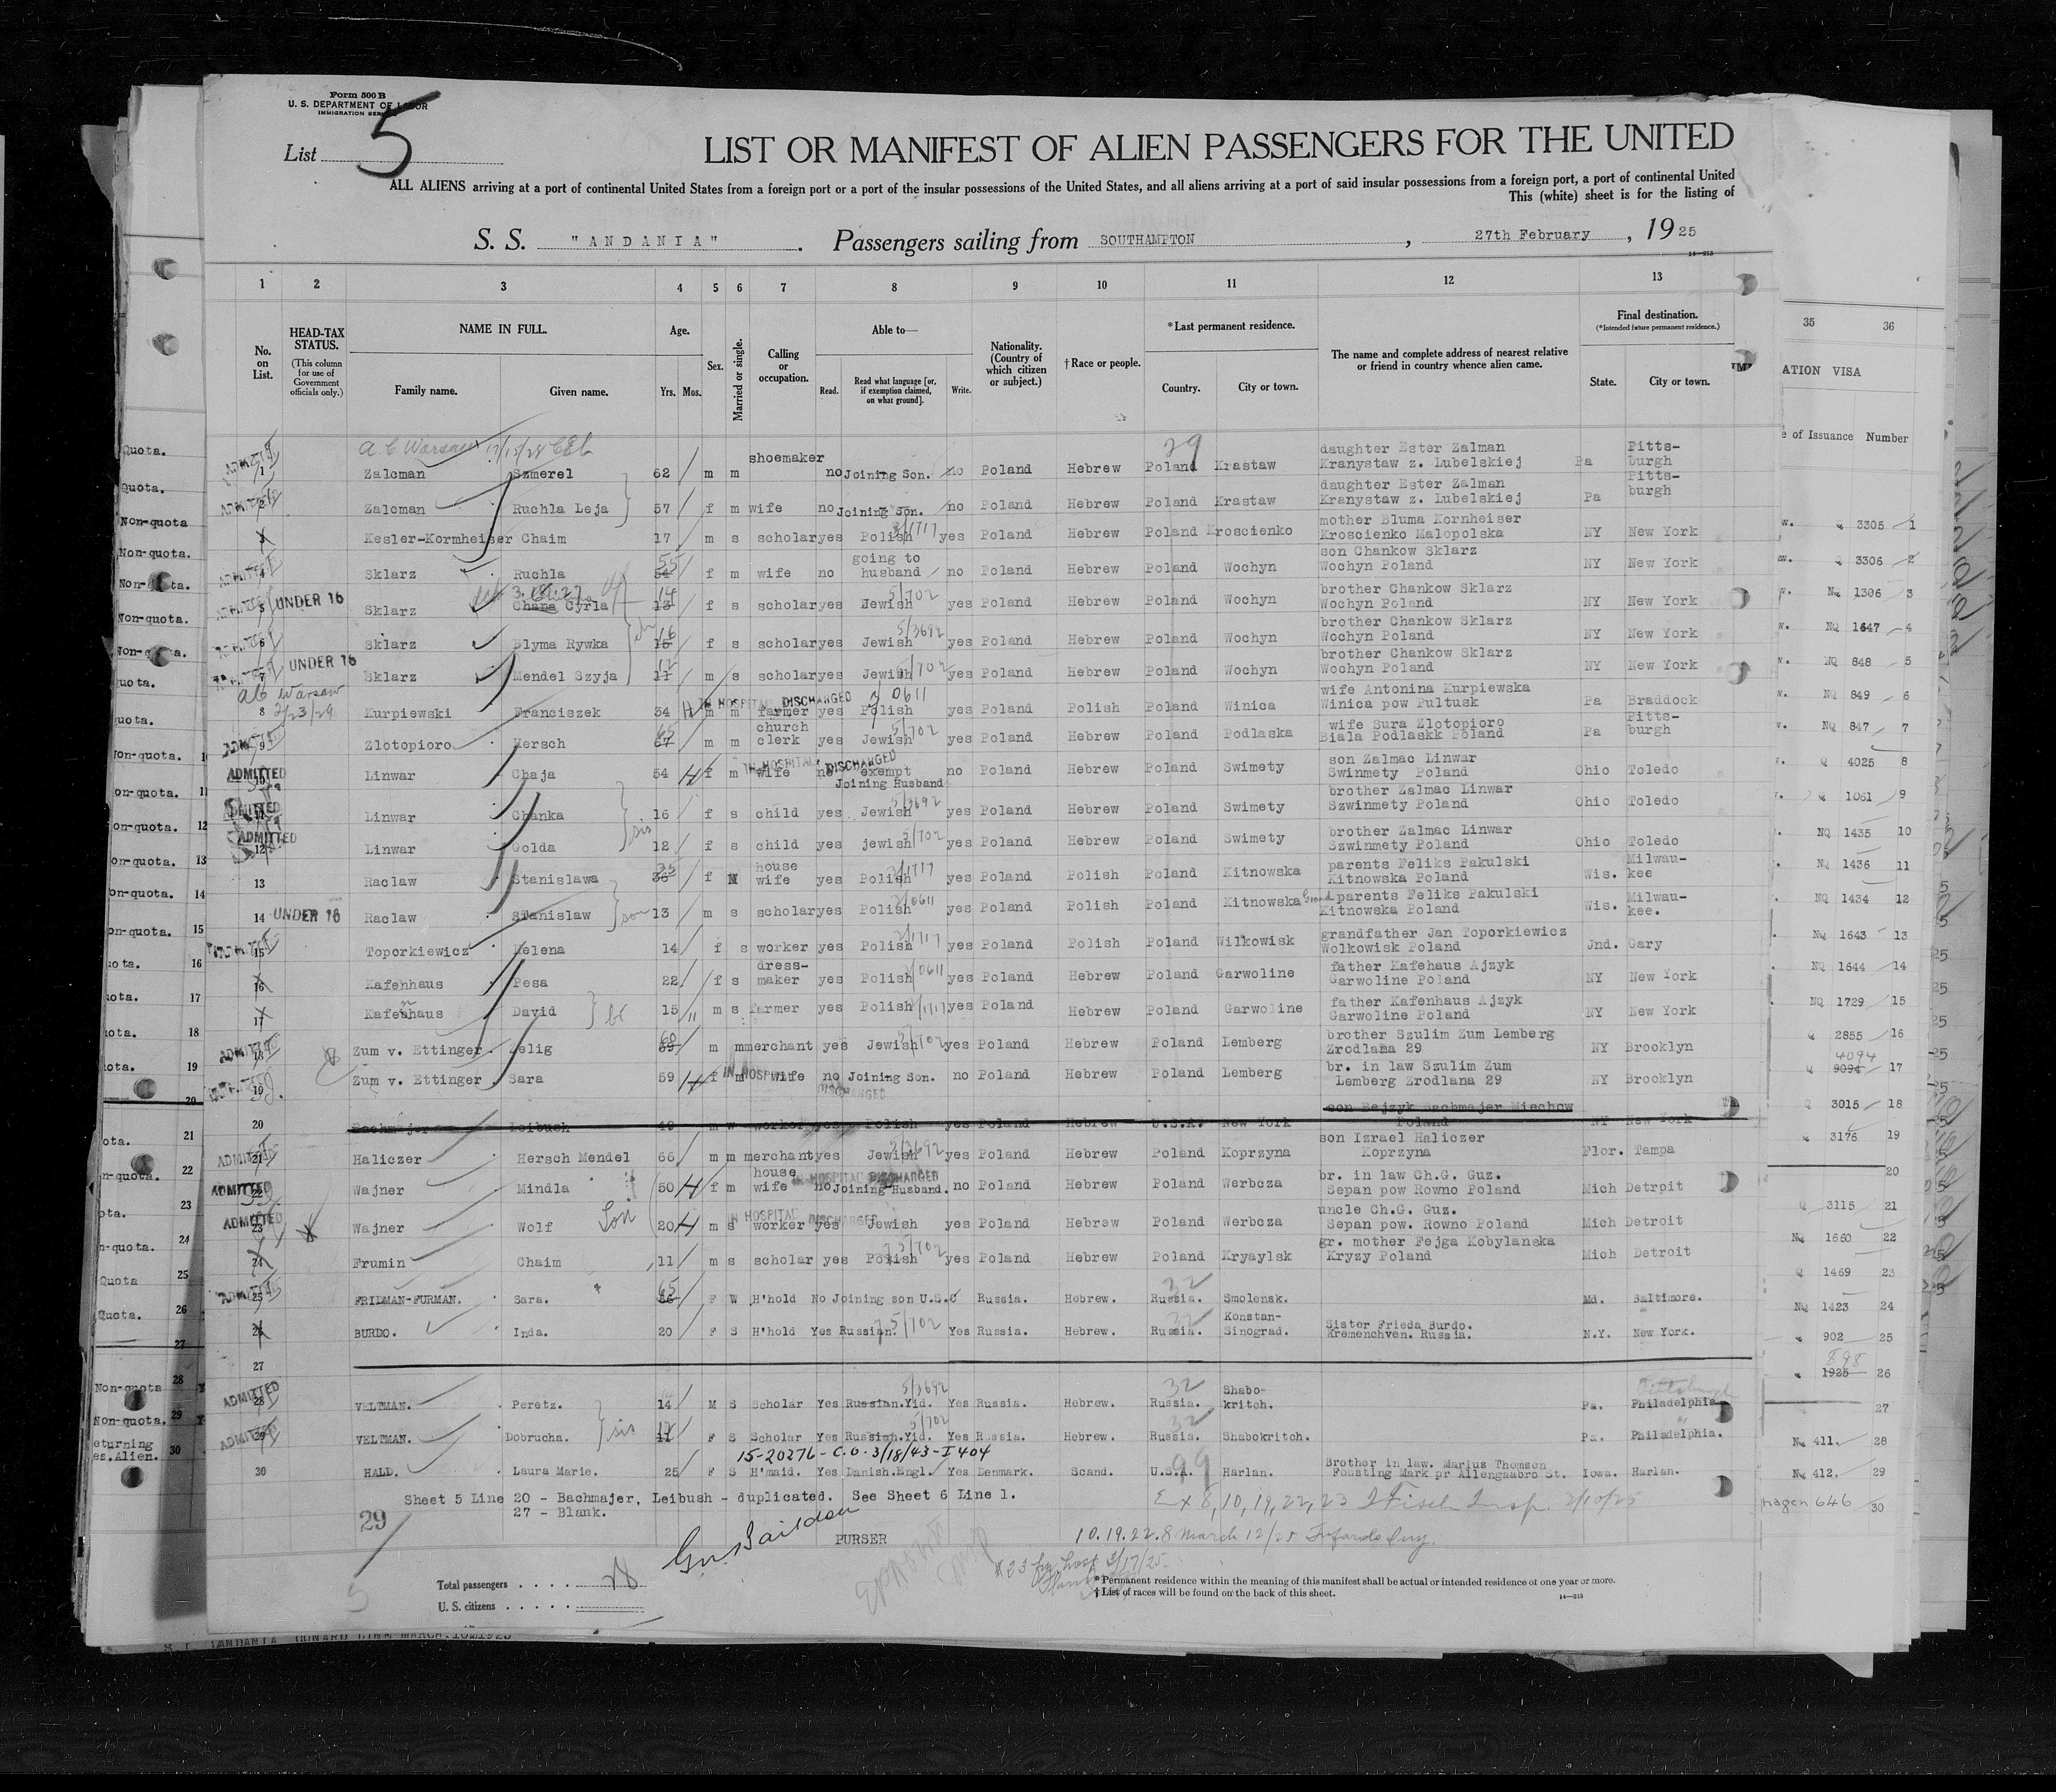 Form 500 B
U. S. DEPARTMENT OF LABOR
IMMIGRATION SERVICE
List 5
LIST OR MANIFEST OF ALIEN PASSENGERS FOR THE UNITED
ALL ALIENS arriving at a port of continental United States from a foreign port or a port of the insular possessions of the United States, and all aliens arriving at a port of said insular possessions from a foreign port, a port of continental United
This (white) sheet is for the listing of
S. S. "ANDANIA". Passengers sailing from SOUTHAMPTON, 27th February, 1925
1 2 3 4 5 6 7 8 9 10 11 12 13
No. on List. HEAD-TAX STATUS. (This column for use of Government officials only.) NAME IN FULL. Family name. Given name. Age. Yrs. Mos. Sex. Married or single. Calling or occupation. Able to— Read. Read what language [or, if exemption claimed, on what ground]. Write. Nationality. (Country of which citizen or subject.) † Race or people. *Last permanent residence. Country. City or town. The name and complete address of nearest relative or friend in country whence alien came. Final destination. (*Intended future permanent residence.) State. City or town.
35 36
ATION VISA
e of Issuance Number
1 Zalcman Szmerel 62 m m shoemaker no Joining Son. no Poland Hebrew Poland Krastaw daughter Ester Zalman Kranystaw z. Lubelskiej Pa Pittsburgh
2 Zalcman Ruchla Leja 57 f m wife no Joining Son. no Poland Hebrew Poland Krastaw daughter Ester Zalman Kranystaw z. Lubelskiej Pa Pittsburgh
3 Kesler-Kormheiser Chaim 17 m s scholar yes Polish yes Poland Hebrew Poland Kroscienko mother Bluma Kornheiser Kroscienko Malopolska NY New York
4 Sklarz Ruchla 54 55 f m wife no going to husband no Poland Hebrew Poland Wochyn son Chankow Sklarz Wochyn Poland NY New York
5 UNDER 16 Sklarz Chana Cyrla 13 14 f s scholar yes Jewish yes Poland Hebrew Poland Wochyn brother Chankow Sklarz Wochyn Poland NY New York
6 Sklarz Blyma Rywka 15 16 f s scholar yes Jewish yes Poland Hebrew Poland Wochyn brother Chankow Sklarz Wochyn Poland NY New York
7 UNDER 16 Sklarz Mendel Szyja 11 12 m s scholar yes Jewish yes Poland Hebrew Poland Wochyn brother Chankow Sklarz Wochyn Poland NY New York
8 Kurpiewski Franciszek 34 m m farmer yes Polish yes Poland Polish Poland Winica wife Antonina Kurpiewska Winica pow Pultusk Pa Braddock
IN HOSPITAL DISCHARGED
9 Zlotopioro Hersch 67 m m church clerk yes Jewish yes Poland Hebrew Poland Podlaska wife Sura Zlotopioro Biala Podlaskk Poland Pa Pittsburgh
10 ADMITTED Linwar Chaja 54 f m wife no exempt Joining Husband no Poland Hebrew Poland Swimety son Zalmac Linwar Swinmety Poland Ohio Toledo
IN HOSPITAL DISCHARGED
11 ADMITTED Linwar Chanka 16 f s child yes Jewish yes Poland Hebrew Poland Swimety brother Zalmac Linwar Szwinmety Poland Ohio Toledo
12 ADMITTED Linwar Golda 12 f s child yes jewish yes Poland Hebrew Poland Swimety brother Zalmac Linwar Szwinmety Poland Ohio Toledo
13 Raclaw Stanislawa f M house wife yes Polish yes Poland Polish Poland Kitnowska parents Feliks Pakulski Kitnowska Poland Wis. Milwaukee
14 UNDER 16 Raclaw Stanislaw son 13 m s scholar yes Polish yes Poland Polish Poland Kitnowska Grand parents Feliks Pakulski Kitnowska Poland Wis. Milwaukee.
15 Toporkiewicz Helena 14 f s worker yes Polish yes Poland Polish Poland Wilkowisk grandfather Jan Toporkiewicz Wolkowisk Poland Jnd. Gary
16 Kafenhaus Pesa 22 f s dressmaker yes Polish yes Poland Hebrew Poland Garwoline father Kafehaus Ajzyk Garwoline Poland NY New York
17 Kafenhaus David 15 m s farmer yes Polish yes Poland Hebrew Poland Garwoline father Kafenhaus Ajzyk Garwoline Poland NY New York
18 Zum v. Ettinger Zelig 59 60 m m merchant yes Jewish yes Poland Hebrew Poland Lemberg brother Szulim Zum Lemberg Zrodlana 29 NY Brooklyn
19 Zum v. Ettinger Sara 59 f m wife no Joining Son. no Poland Hebrew Poland Lemberg br. in law Szulim Zum Lemberg Zrodlana 29 NY Brooklyn
IN HOSPITAL DISCHARGED
20 Bachmajer Leibuch 49 m w worker yes Polish yes Poland Hebrew U.S.A. New York son Bejzyk Bachmajer Miechow Poland NY New York
21 Haliczer Hersch Mendel 66 m m merchant yes Jewish yes Poland Hebrew Poland Koprzyna son Izrael Haliczer Koprzyna Flor. Tampa
22 ADMITTED Wajner Mindla 50 f m house wife no Joining Husband. no Poland Hebrew Poland Werbcza br. in law Ch.G. Guz. Sepan pow Rowno Poland Mich Detrpit
23 ADMITTED Wajner Wolf Son 20 m s worker yes Jewish yes Poland Hebrew Poland Werbcza uncle Ch.G. Guz. Sepan pow. Rowno Poland Mich Detroit
24 Frumin Chaim 11 m s scholar yes Polish yes Poland Hebrew Poland Kryaylsk gr. mother Fejga Kobylanska Kryzy Poland Mich Detroit
25 FRIDMAN-FURMAN. Sara. 65 F W H'hold No Joining son U.S.C Russia. Hebrew. Russia. Smolensk. Md. Baltimore.
26 BURDO. Inda. 20 F S H'hold Yes Russian. Yes Russia. Hebrew. Russia. Konstan-Sinograd. Sister Frieda Burdo. Kremenchven. Russia. N.Y. New York.
27
28 ADMITTED VELTMAN. Peretz. 14 M S Scholar Yes Russian.Yid. Yes Russia. Hebrew. Russia. Shabo-kritch. Pa. Philadelphia Pittsburgh
29 ADMITTED VELTMAN. Dobrucha. sis 11 12 F S Scholar Yes Russian.Yid. Yes Russia. Hebrew. Russia. Shabokritch. Pa. Philadelphia.
15-20276-C.O.-3/18/43-I404
30 HALD. Laura Marie. 25 F S H'maid. Yes Danish.Engl. Yes Denmark. Scand. U.S.A. Harlan. Brother in law. Marius Thomsen Fousting Mark pr Allengaabro St. Iowa. Harlan.
Sheet 5 Line 20 - Bachmajer, Leibush - duplicated. See Sheet 6 Line 1.
27 - Blank.
29
PURSER
Total passengers . . . .
U. S. citizens . . . . .
* Permanent residence within the meaning of this manifest shall be actual or intended residence of one year or more.
† List of races will be found on the back of this sheet.
14—213
Q 3305 1
Q 3306 2
NQ 1306 3
NQ 1647 4
NQ 848 5
NQ 849 6
NQ 847 7
Q 4025 8
Q 1061 9
NQ 1435 10
NQ 1436 11
NQ 1434 12
NQ 1643 13
NQ 1644 14
NQ 1729 15
Q 2855 16
4094
Q 9094 17
Q 3015 18
3176 19
20
Q 3115 21
NQ 1660 22
Q 1469 23
NQ 1423 24
902 25
898
1925 26
27
NQ 411. 28
NQ 412. 29
hagen 646 30